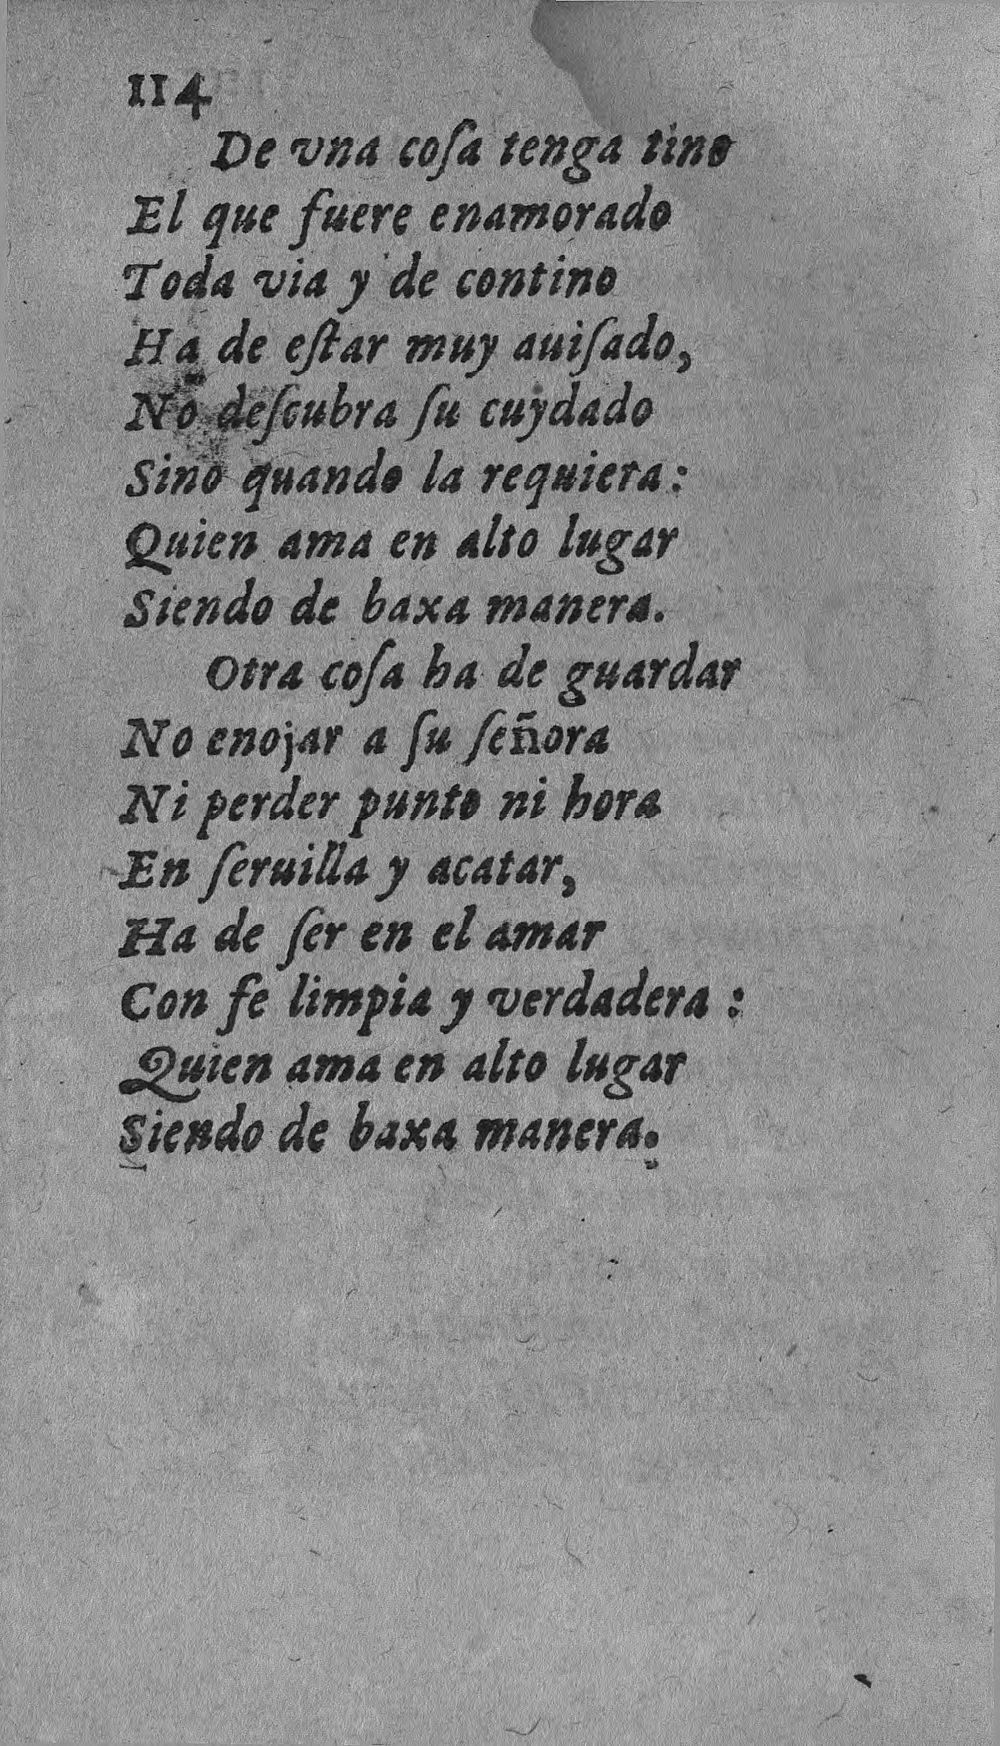 114
De vna coſa tenga tino
El que fuere enamorado
Toda via y de contino
Ha de eſtar muy auiſado,
No deſcubra ſu cuydado
Sino quando la requiera:
Quien ama en alto lugar
Siendo de baxa manera.
Otra coſa ha de guardar
No enojar a ſu ſeñora
Ni perder punto ni hora
En ſeruilla y acatar,
Ha de ſer en el amar
Con fe limpia y verdadera :
Quien ama en alto lugar
Siendo de baxa manera.